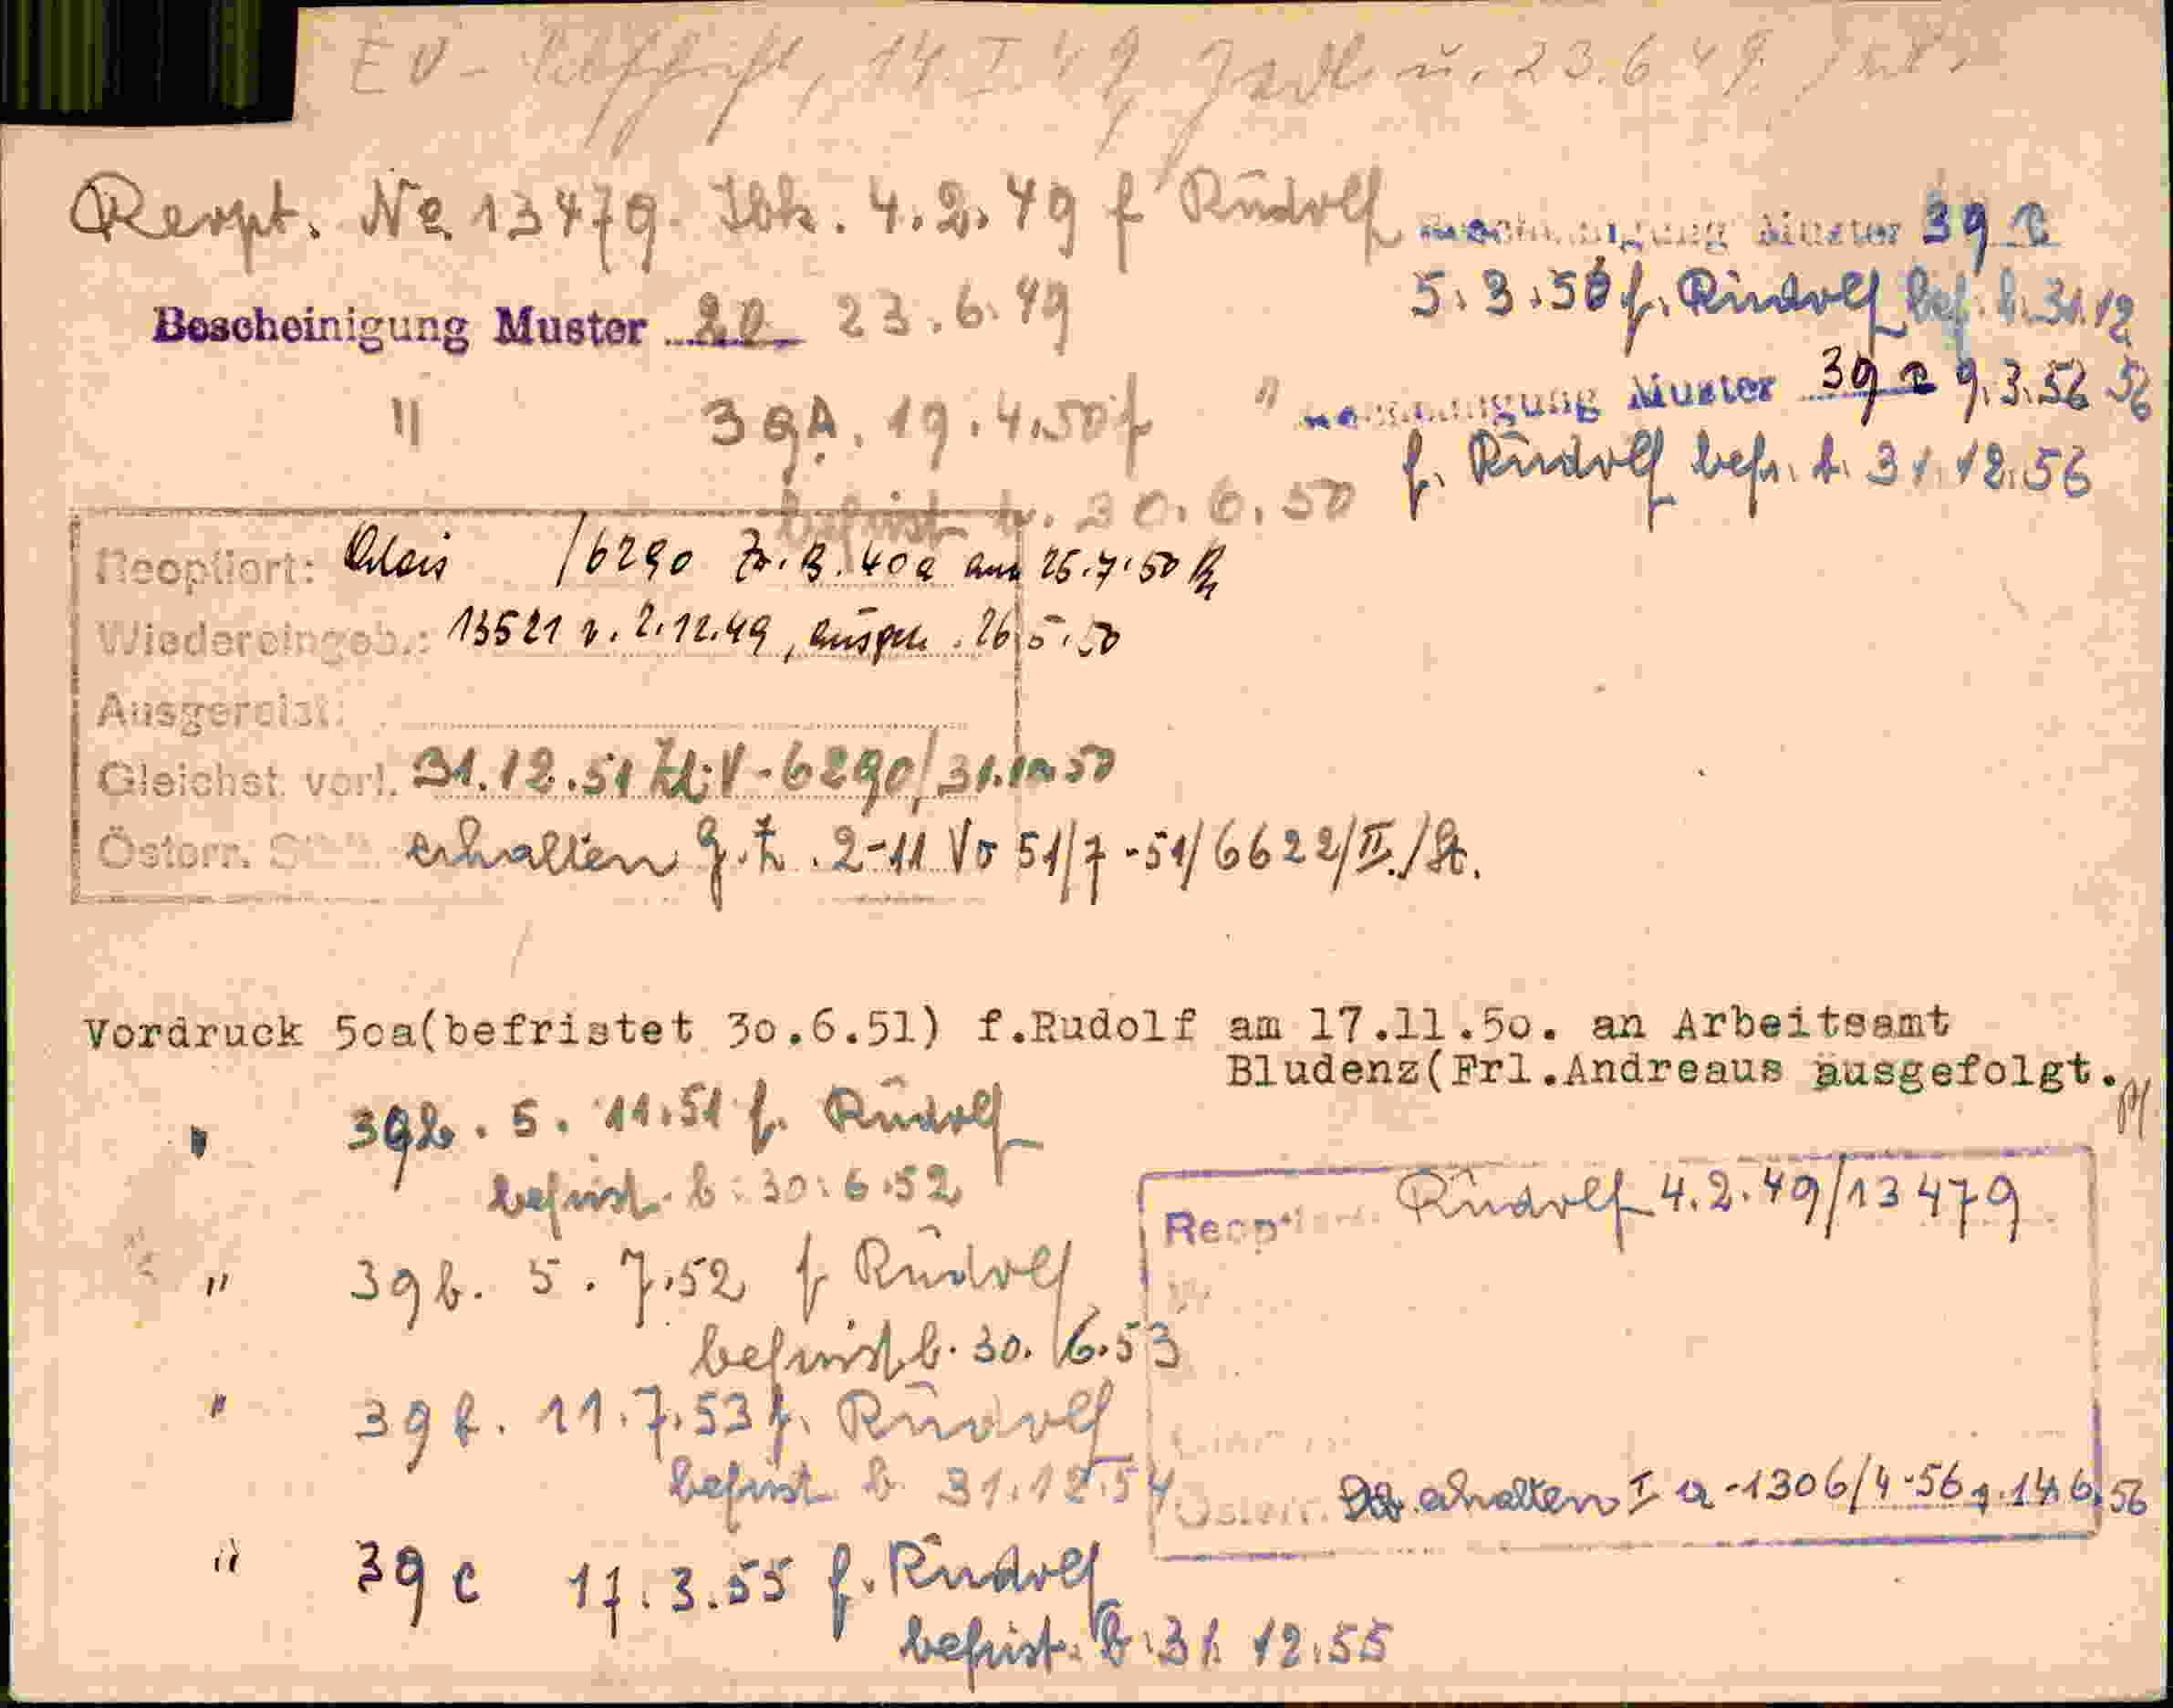 EV - 14. I. 49 u. 23.6.49.
Reopt. № 13479. Ibk. 4.2.49 f Rudolf
Bescheinigung Muster 22 23.6.49
" 39A. 19.4.50 f
befrist b. 30.6.50
Muster 39 c
5.3.56 f. Rudolf bef. b. 31.12
56
" Muster 39 9.3.56
f. Rudolf befr. b. 31.12.56
Reoptiert: Alois /6290 40a am 25.7.50
Wiedereingeb.: 13521 v. 2.12.49, 26.5.50
Ausgereist:
Gleichst. verl. 31.12.51 Zl: V-6290/31.10.50
Österr. erhalten 2-11 Vo 51/7-51/6622/II./St.
Vordruck 5oa(befristet 3o.6.51) f.Rudolf am 17.11.5o. an Arbeitsamt
Bludenz(Frl.Andreaus ausgefolgt.
" 39b. 5. 11.51 f. Rudolf
befrist. b. 30.6.52
" 39b. 5.7.52 f Rudolf
befrist b. 30.6.53
" 39b. 11.7.53 f. Rudolf
befrist b 31.12.54
" 39 c 17.3.55 f. Rudolf
befrist. b. 31.12.55
Reoptiert: Rudolf 4.2.49/13479
Österr. erhalten I a-1306/4-56 14.6.56